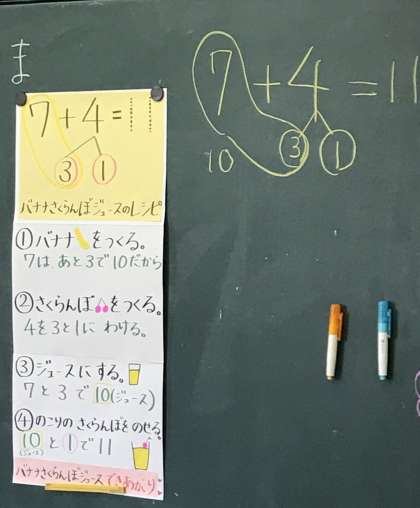 ま
7+4=11
3 1
バナナさくらんぼジュースのレシピ
①バナナをつくる。
7は あと3で10だから
②さくらんぼをつくる。
4を3と1に わける。
③ジュースに する。
7と3で10(ジュース)
④のこりの さくらんぼを のせる。
10と1で11
(ジュース)
バナナさくらんぼジュースできあがり
7+4=11
10 3 1